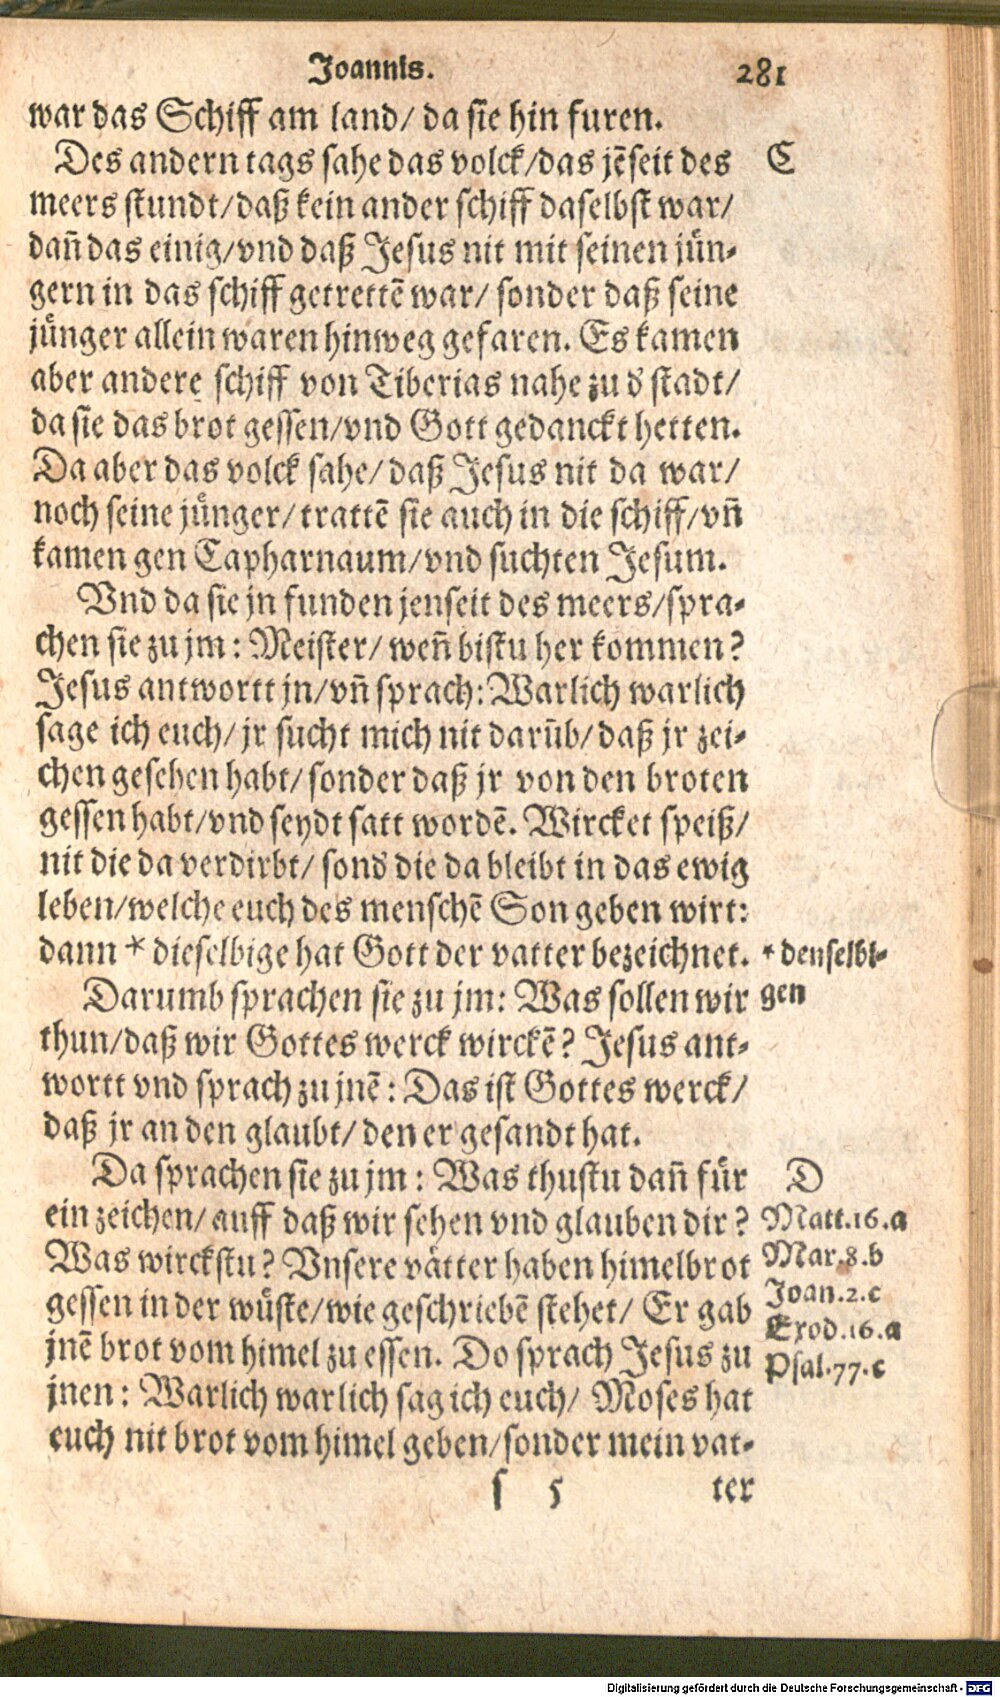 Joannis. 281
war das Schiff am land/ da sie hin furen.
Des andern tags sahe das volck/das jẽseit des C
meers stundt/daß kein ander schiff daselbst war/
dañ das einig/vnd daß Jesus nit mit seinen jün-
gern in das schiff getrettẽ war/ sonder daß seine
jünger allein waren hinweg gefaren. Es kamen
aber andere schiff von Tiberias nahe zu d' stadt/
da sie das brot gessen/vnd Gott gedanckt hetten.
Da aber das volck sahe/ daß Jesus nit da war/
noch seine jünger/ trattẽ sie auch in die schiff/vñ
kamen gen Capharnaum/vnd suchten Jesum.
Vnd da sie jn funden jenseit des meers/spra-
chen sie zu jm: Meister/ weñ bistu her kommen?
Jesus antwortt jn/vñ sprach: Warlich warlich
sage ich euch/ jr sucht mich nit darũb/ daß jr zei-
chen gesehen habt/ sonder daß jr von den broten
gessen habt/vnd seydt satt wordẽ. Wircket speiß/
nit die da verdirbt/ sond' die da bleibt in das ewig
leben/welche euch des menschẽ Son geben wirt:
dann * dieselbige hat Gott der vatter bezeichnet. * denselbi-
Darumb sprachen sie zu jm: Was sollen wir gen
thun/daß wir Gottes werck wirckẽ? Jesus ant-
wortt vnd sprach zu jnẽ: Das ist Gottes werck/
daß jr an den glaubt/ den er gesandt hat.
Da sprachen sie zu jm: Was thustu dañ für D
ein zeichen/ auff daß wir sehen vnd glauben dir? Matt.16.a
Was wirckstu? Vnsere vätter haben himelbrot Mar.8.b
gessen in der wüste/wie geschriebẽ stehet/ Er gab Joan.2.c
jnẽ brot vom himel zu essen. Do sprach Jesus zu Exod.16.a
jnen: Warlich warlich sag ich euch/ Moses hat Psal.77.c
euch nit brot vom himel geben/sonder mein vat-
s 5 ter
Digitalisierung gefördert durch die Deutsche Forschungsgemeinschaft - DFG